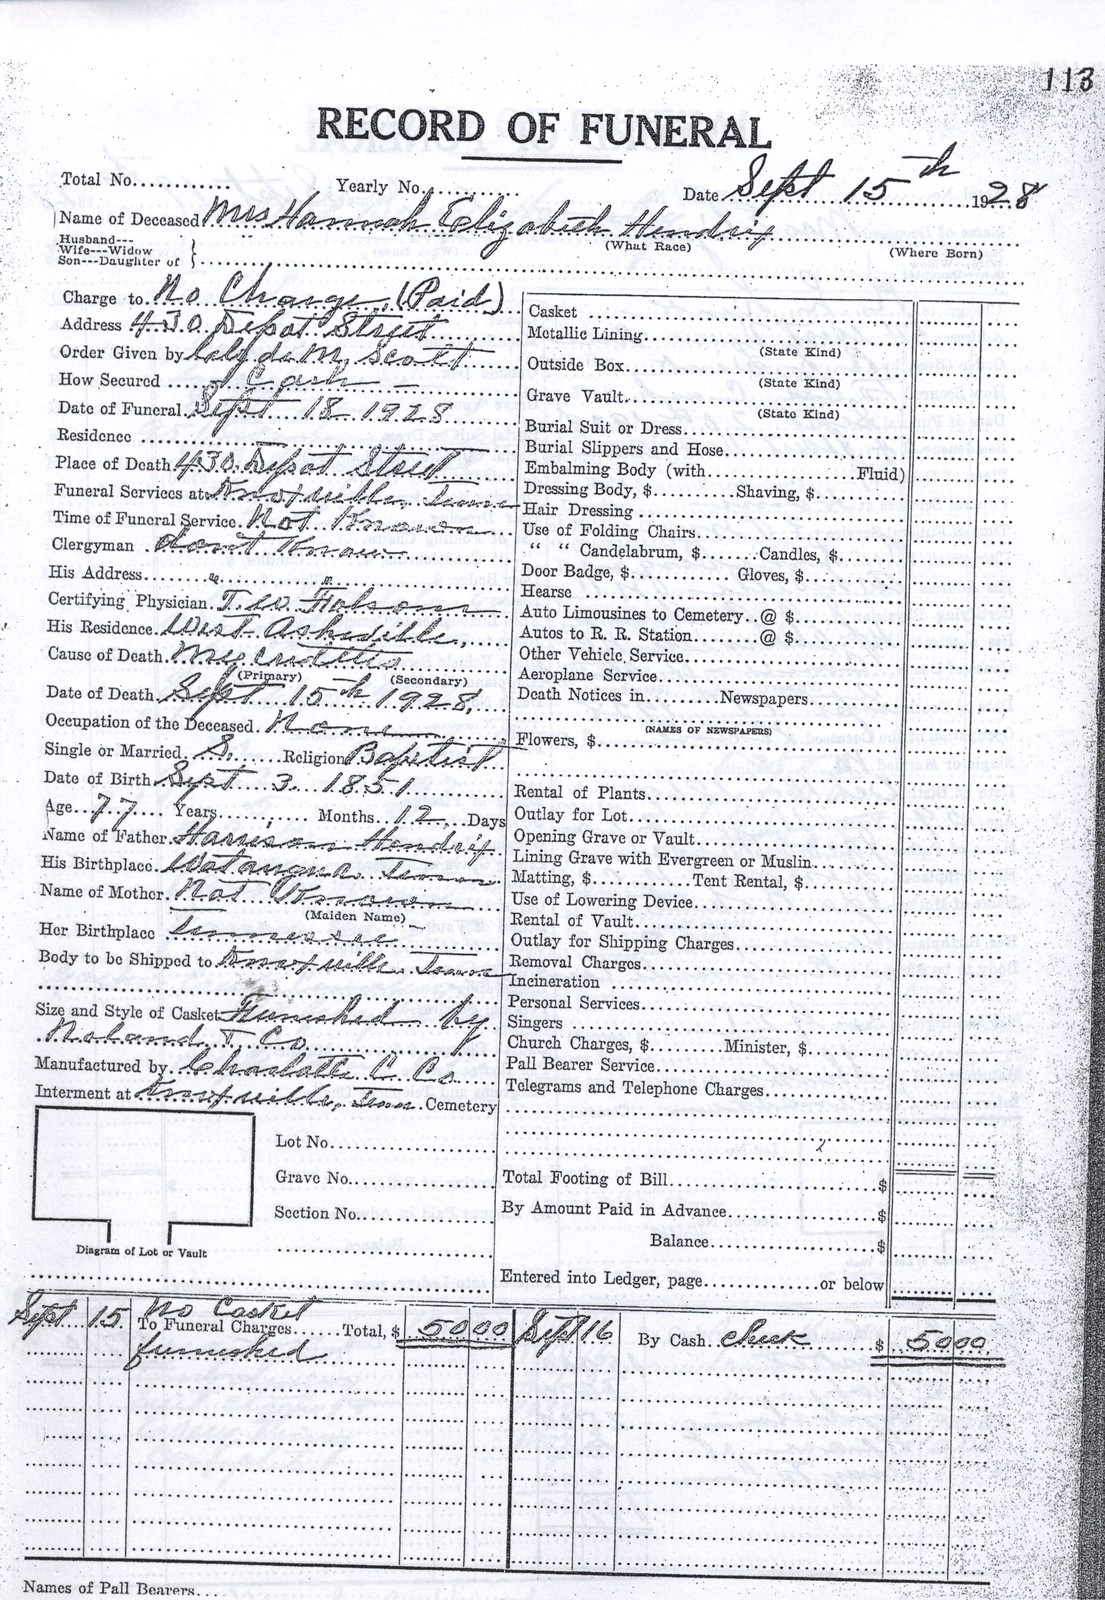 113
RECORD OF FUNERAL
Total No............ Yearly No........... Date Sept 15th 1928
Name of Deceased Mrs Hannah Elizabeth Hendrix
(What Race) (Where Born)
Husband---
Wife---Widow
Son---Daughter of
Charge to No Charge, (Paid)
Address 430 Depot Street
Order Given by Clyde M. Scott
How Secured Cash -
Date of Funeral Sept 18 1928
Residence
Place of Death 430 Depot Street
Funeral Services at Knoxville, Tenn
Time of Funeral Service Not Known
Clergyman dont Know
His Address
Certifying Physician T. W. Folsom
His Residence West Asheville,
Cause of Death
(Primary) (Secondary)
Date of Death Sept 15th 1928.
Occupation of the Deceased None
Single or Married S. Religion Baptist
Date of Birth Sept 3 1851
Age 77 Years Months 12 Days
Name of Father Harrison Hendrix
His Birthplace Watauga Tenn
Name of Mother Not Known
(Maiden Name)
Her Birthplace Tennessee
Body to be Shipped to Knoxville Tenn
Size and Style of Casket Furnished by
Noland T. Co
Manufactured by Charlotte C. Co
Interment at Knoxville, Tenn. Cemetery
Lot No.
Grave No.
Section No.
Diagram of Lot or Vault
Casket
Metallic Lining
(State Kind)
Outside Box
(State Kind)
Grave Vault
(State Kind)
Burial Suit or Dress
Burial Slippers and Hose
Embalming Body (with Fluid)
Dressing Body, $ Shaving, $
Hair Dressing
Use of Folding Chairs
" " Candelabrum, $ Candles, $
Door Badge, $ Gloves, $
Hearse
Auto Limousines to Cemetery @ $
Autos to R. R. Station @ $
Other Vehicle Service
Aeroplane Service
Death Notices in Newspapers
(NAMES OF NEWSPAPERS)
Flowers, $
Rental of Plants
Outlay for Lot
Opening Grave or Vault
Lining Grave with Evergreen or Muslin
Matting, $ Tent Rental, $
Use of Lowering Device
Rental of Vault
Outlay for Shipping Charges
Removal Charges
Incineration
Personal Services
Singers
Church Charges, $ Minister, $
Pall Bearer Service
Telegrams and Telephone Charges
Total Footing of Bill $
By Amount Paid in Advance $
Balance $
Entered into Ledger, page or below
No Casket
Sept 15 To Funeral Charges Total, $ 50 00 Sept 16 By Cash check $ 50 00
furnished
Names of Pall Bearers